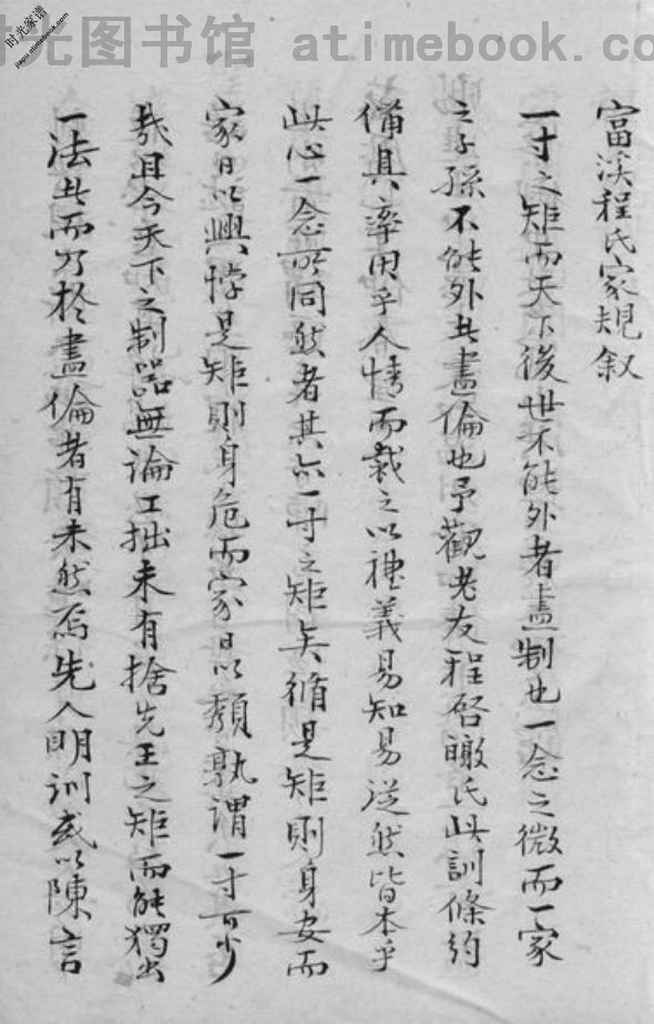 时光图书馆 atimebook.co
时光家谱
jiapu.atimebook.com
富溪程氏家規叙
一寸之矩而天下後世不能外者盡制也一念之微而一家
之子孫不能外其盡倫也予觀老友程啓暾氏此訓條約
備具率因乎人情而裁之以禮義易知易從然皆本乎
此心一念所同然者其亦一寸之矩矣循是矩則身安而
家日以興悖是矩則身危而家日以頽孰謂一寸可少
哉且今天下之制器無論工拙未有捨先王之矩而能獨出
一法其而乃於盡倫者有未然焉先人明訓或以陳言